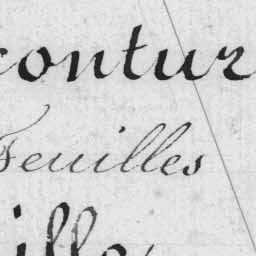 contur
Feuilles
ille